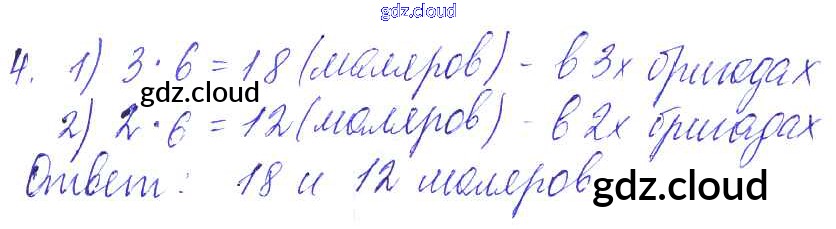 gdz.cloud
4. 1) 3 · 6 = 18 (маляров) - в 3х бригадах
gdz.cloud
2) 2 · 6 = 12 (маляров) - в 2х бригадах
Ответ: 18 и 12 маляров
gdz.cloud